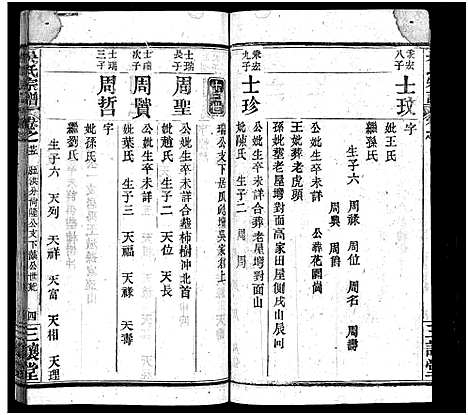 秉宏八子
士玟
字
妣王氏
繼孫氏
生子六 周祿 周位 周名 周壽
周興 周爵
公妣生卒未詳 公葬花園崗
王妣葬老虎頭
孫妣墓老屋塆對面高家田屋側戌山辰向
秉宏九子
士珍
公妣生卒未詳合葬老屋塆對面山
妣陳氏 生子二 周 周
十三世
士瑞長子
周聖
公妣生卒未詳合墓柿樹冲北首
妣趙氏 生子二 天位 天長
士瑞次子
周贊
公妣生卒未詳
妣葉氏 生子三 天福 天祿 天壽
士瑞三子
周哲
字
妣孫氏
繼劉氏
生子六 天列 天祥 天富 天相 天理
吳氏宗譜
四
三讓堂